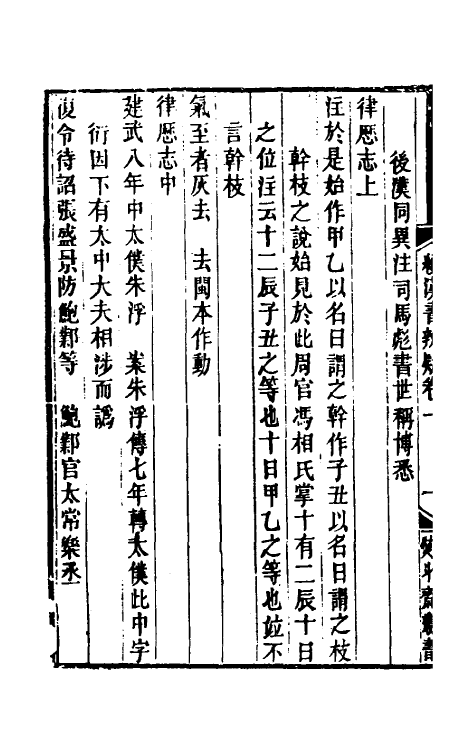 後漢同異注司馬彪書世稱博悉
律厯志上
注於是始作甲乙以名日謂之幹作子丑以名日謂之枝
幹枝之說始見於此周官馮相氏掌十有二辰十日
之位注云十二辰子丑之等也十日甲乙之等也竝不
言幹枝
氣至者灰去　去閩本作動
律厯志中
建武八年中太僕朱浮　案朱浮傳七年轉太僕此中字
衍因下有太中大夫相涉而譌
復令待詔張盛景防鮑鄴等　鮑鄴官太常樂丞